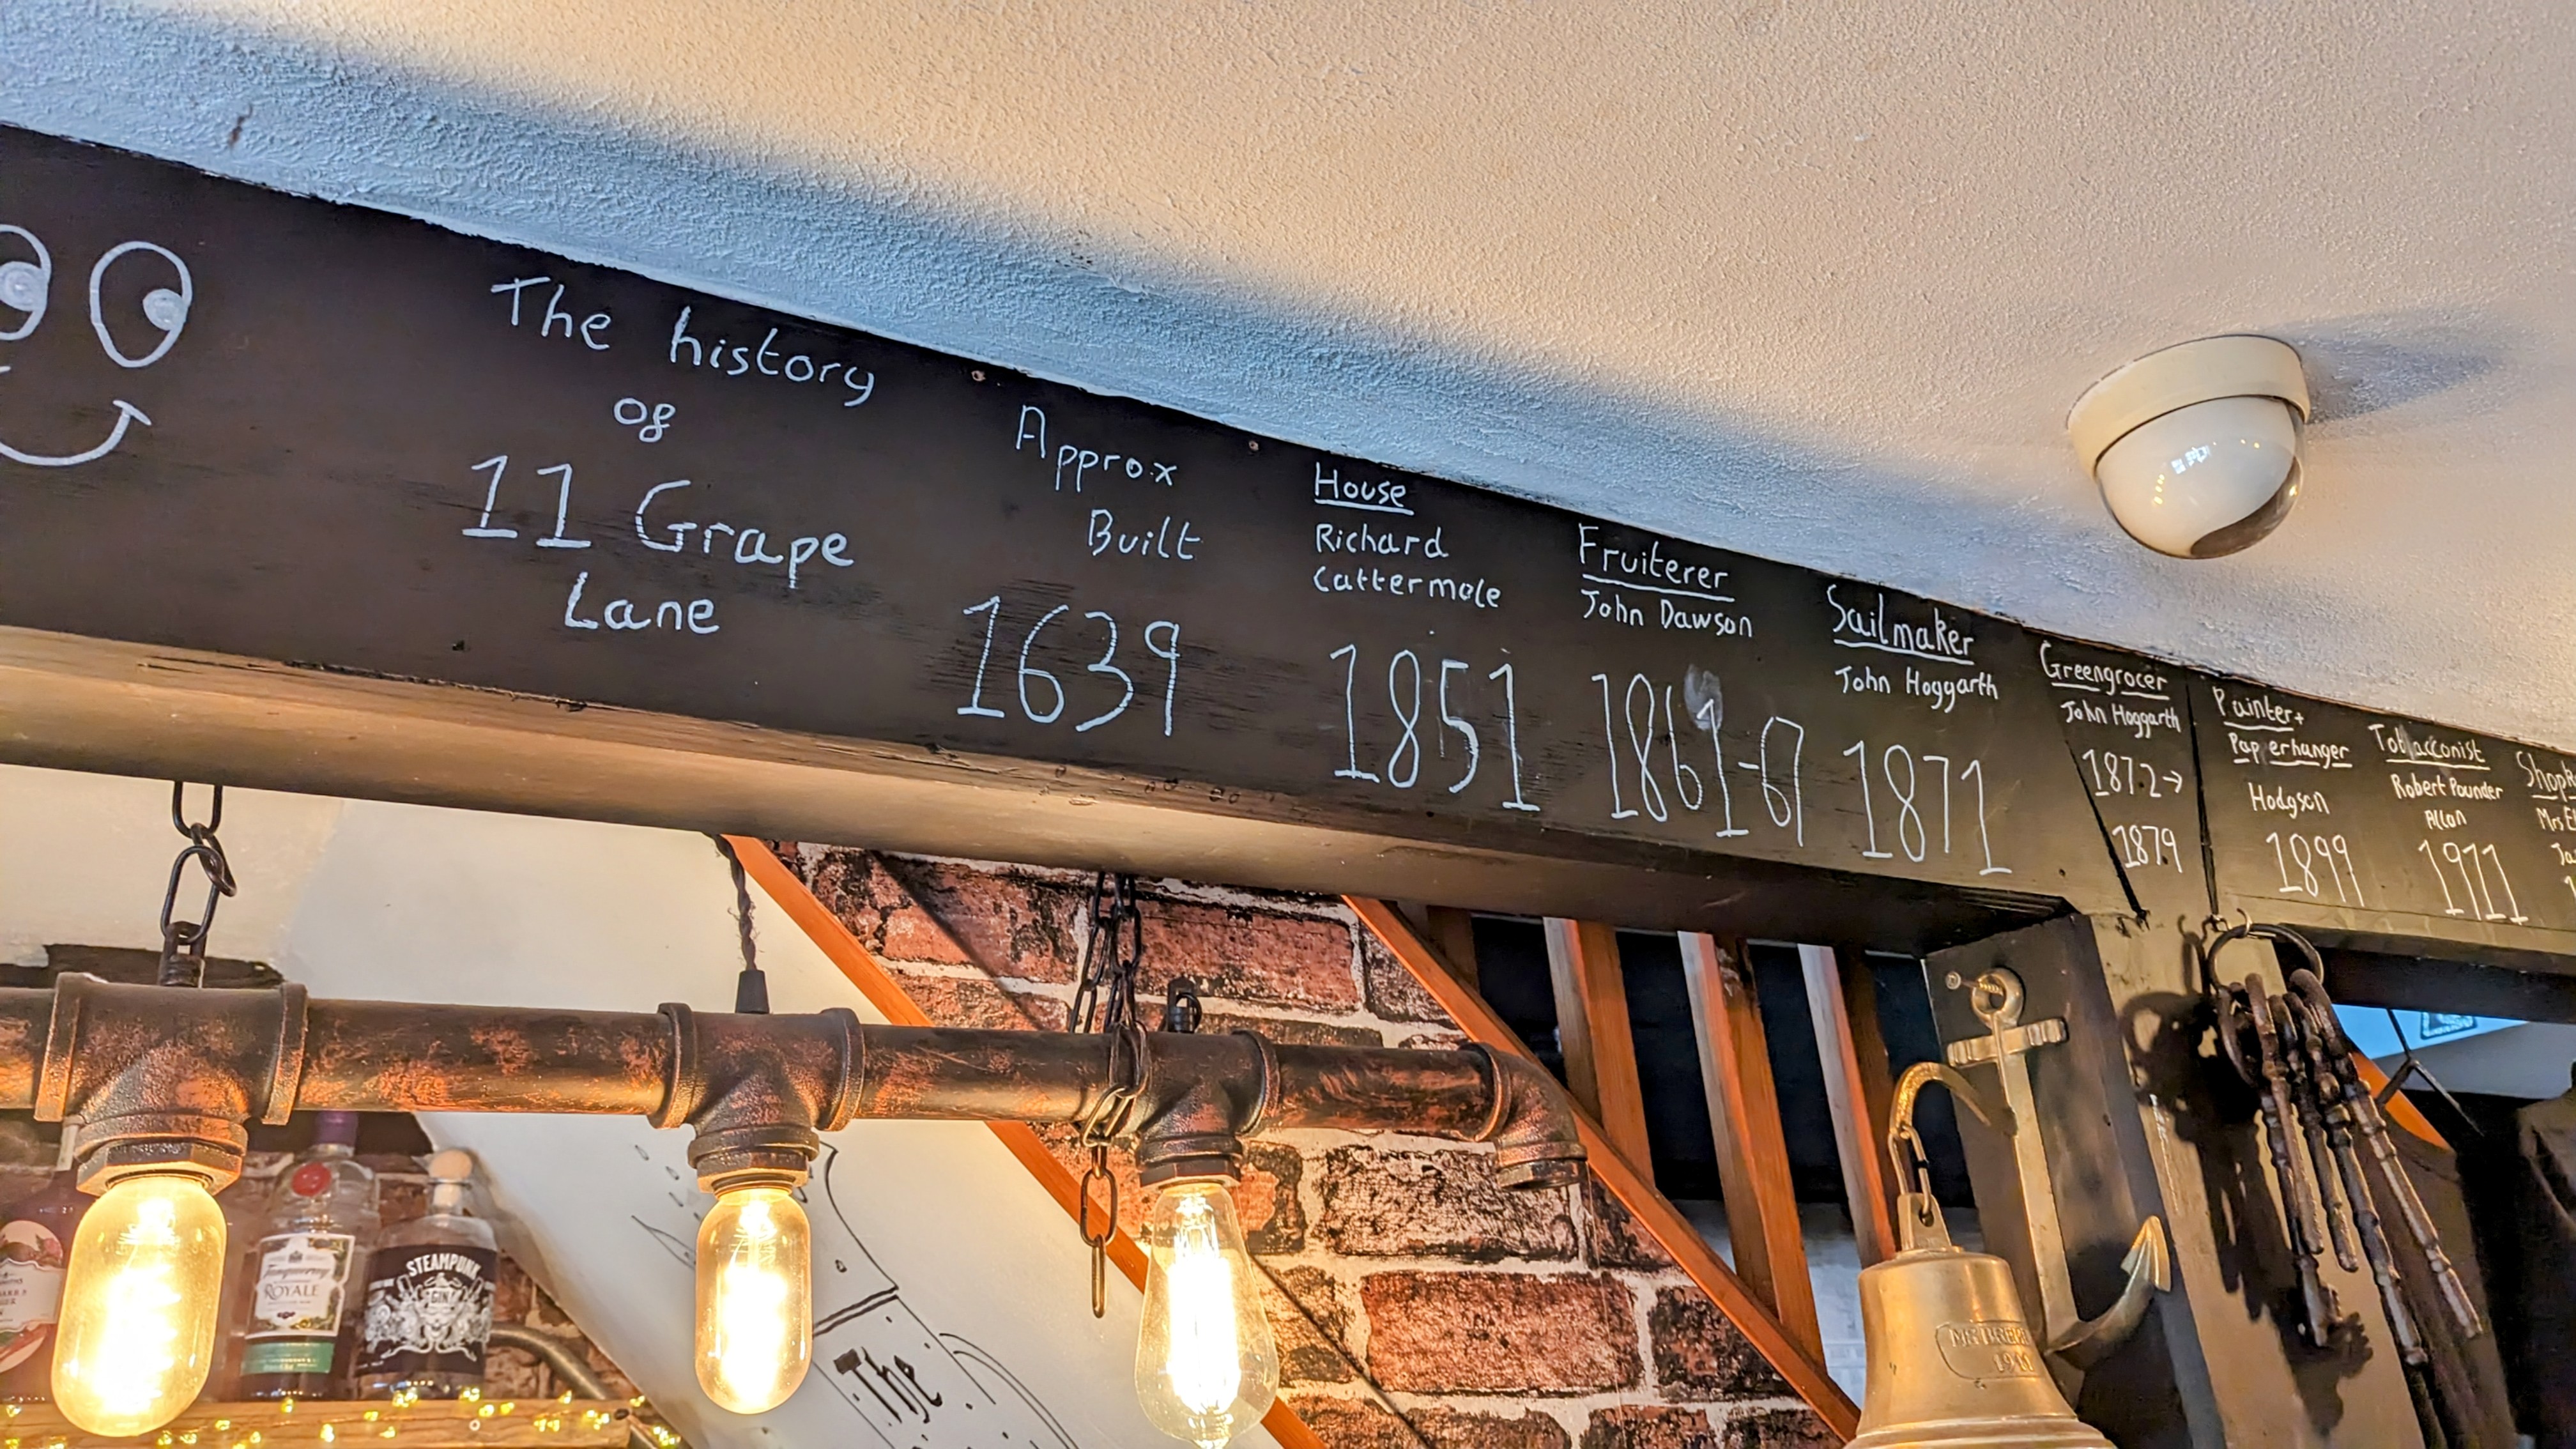 The history
of
11 Grape
Lane
Approx
Built
1639
House
Richard
Cattermole
1851
Fruiterer
John Dawson
1861-67
Sailmaker
John Hoggarth
1871
Greengrocer
John Hoggarth
1872→
1879
Painter+
Paperhanger
Hodgson
1899
Tobacconist
Robert Pounder
Allan
1911
Mrs
STEAMPUNK
GIN
Tanqueray
ROYALE
The
1910